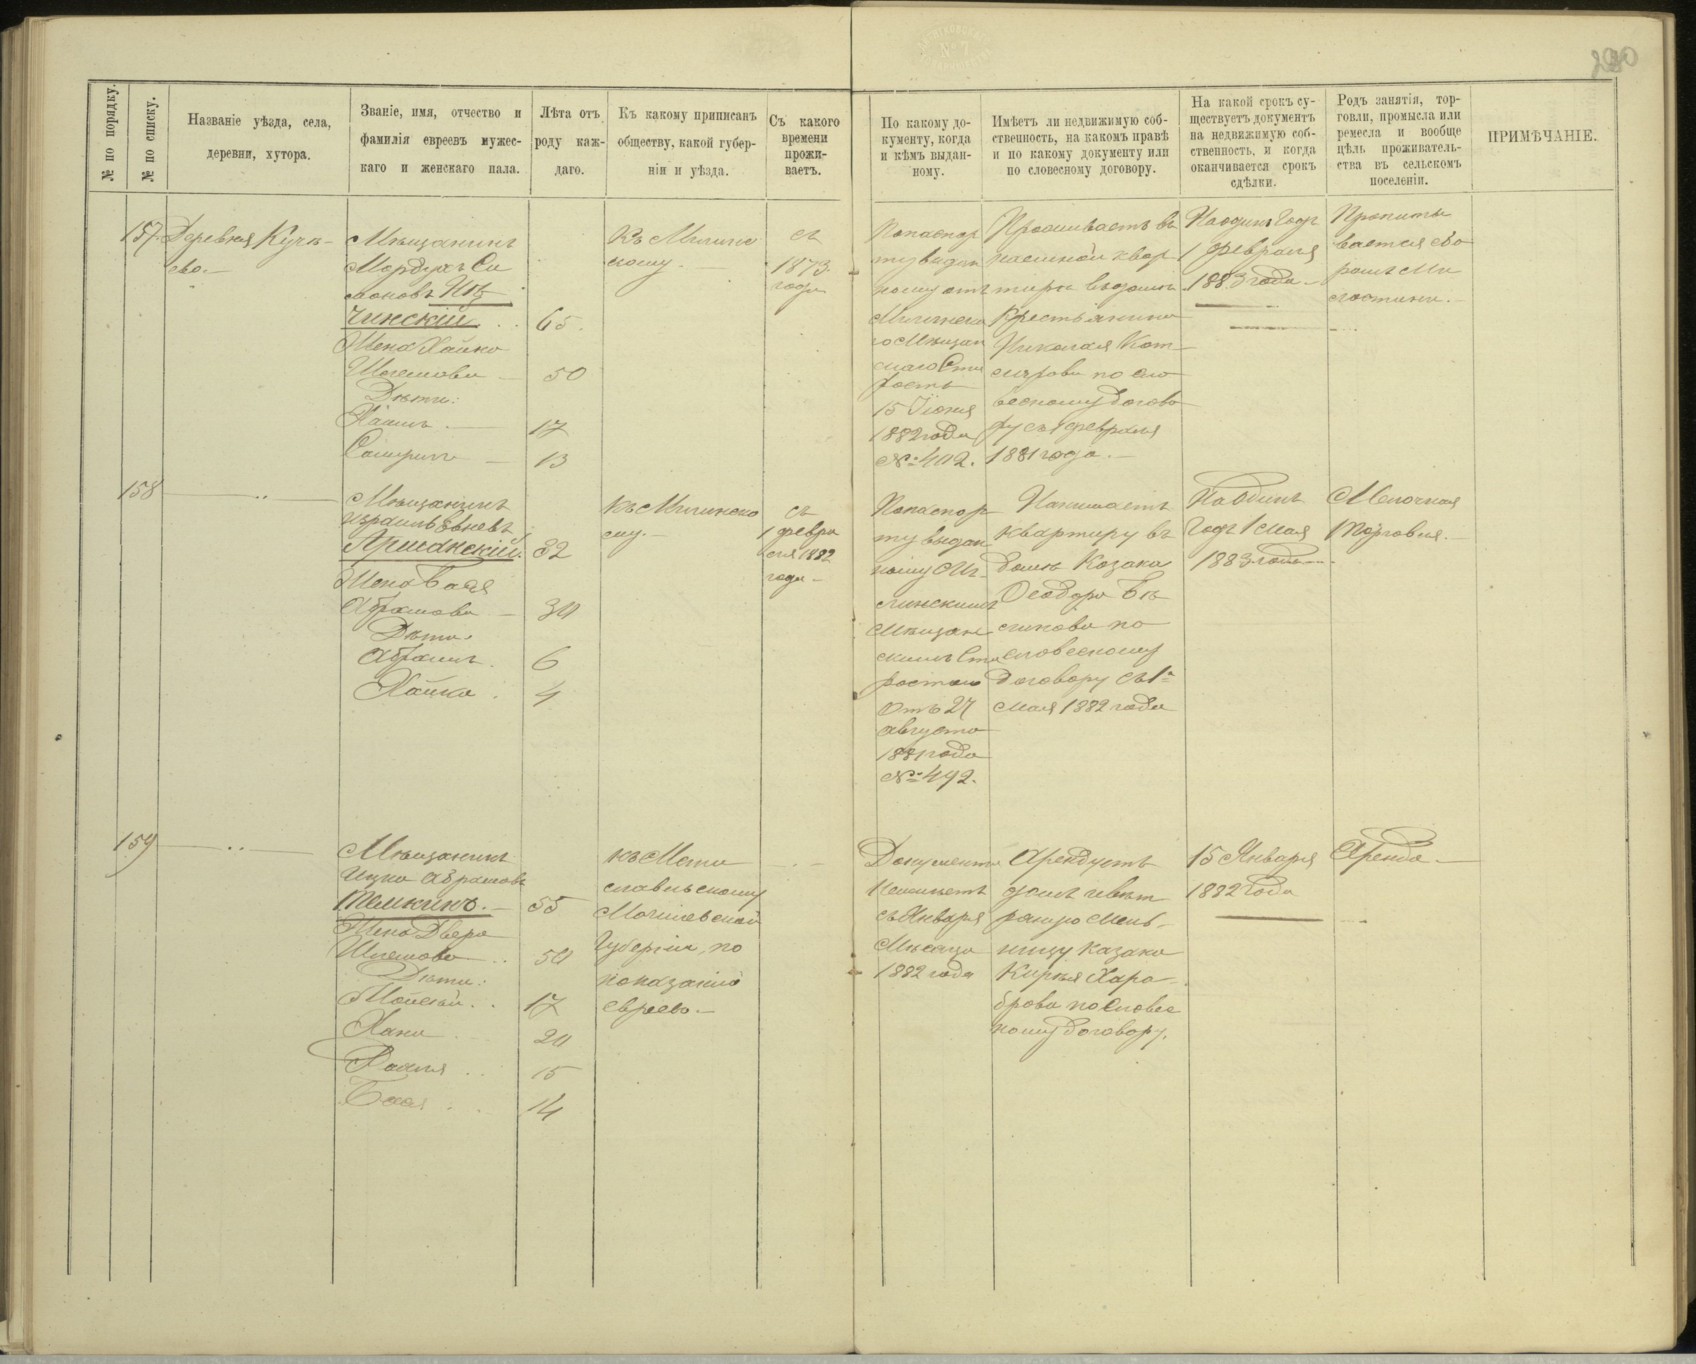 290
№ по порядку.
№ по списку.
Названіе уѣзда, села,
деревни, хутора.
Званіе, имя, отчество и
фамилія евреевъ мужес-
каго и женскаго пала.
Лѣта отъ
роду каж-
даго.
Къ какому приписанъ
обществу, какой губер-
ніи и уѣзда.
Съ какого
времени
прожи-
ваетъ.
По какому до-
кументу, когда
и кѣмъ выдан-
ному.
Имѣетъ ли недвижимую соб-
ственность, на какомъ правѣ
и по какому документу или
по словесному договору.
На какой срокъ су-
ществуетъ документъ
на недвижимую соб-
ственность, и когда
оканчивается срокъ
сдѣлки.
Родъ занятія, тор-
говли, промысла или
ремесла и вообще
цѣль проживатель-
ства въ сельскомъ
поселеніи.
ПРИМѢЧАНІЕ.
157
Деревня Кучѣ-
ево.
Мѣщанинъ
Мордухъ Си
моновъ Иц
чинскій
65.
Жена Хайка
50
Дѣти:
17
13
Къ Мглинс
кому.
съ
1873
года
По паспор
ту выдан
ному отъ
Мглинска
го Мѣщан
скаго Ста
росты
15 Іюня
1882 года
№ 402.
Проживаетъ въ
наемной квар
тирѣ въ домѣ
Крестьянина
Николая
по сло
весному догово
ру съ 1 февраля
1881 года.
На одинъ Годъ
1 февраля
1883 года
Пропиты
вается сво
ромъ Ми
лостыни.
158
Мѣщанинъ
Израиль
Аршанскій.
32
Жена Бася
Абрамова
30
Дѣти.
Абрамъ.
6
Хайка.
4
Къ Мглинско
му.
съ
1 февра
ля 1882
года
По паспор
ту выдан
ному Мг-
линскимъ
Мѣщан
скимъ Ста
ростою
отъ 27
августа
1881 года
№ 492.
Нанимаетъ
квартиру въ
домѣ Козака
Ѳеодора Бѣ
ликова по
словесному
договору съ 1го
мая 1882 года
На Одинъ
Годъ 1 мая
1883 года
Мелочная
Торговля.
159
Мѣщанинъ
Ицка Абрамовъ
Темкинъ.
55
Жена Двера
50
Дѣти:
17
Хана
20
15
Бася
14
Къ Мсти
славльскому
Могилевской
Губерніи, по
показанію
еврея.
Документа
неимѣетъ
съ Января
Мѣсяца
1882 года
Арендуетъ
домъ и вѣт
ряную мель-
ницу казака
Кирѣя Хара
брова по словес
ному договору.
15 Января
1882 года
Аренда.